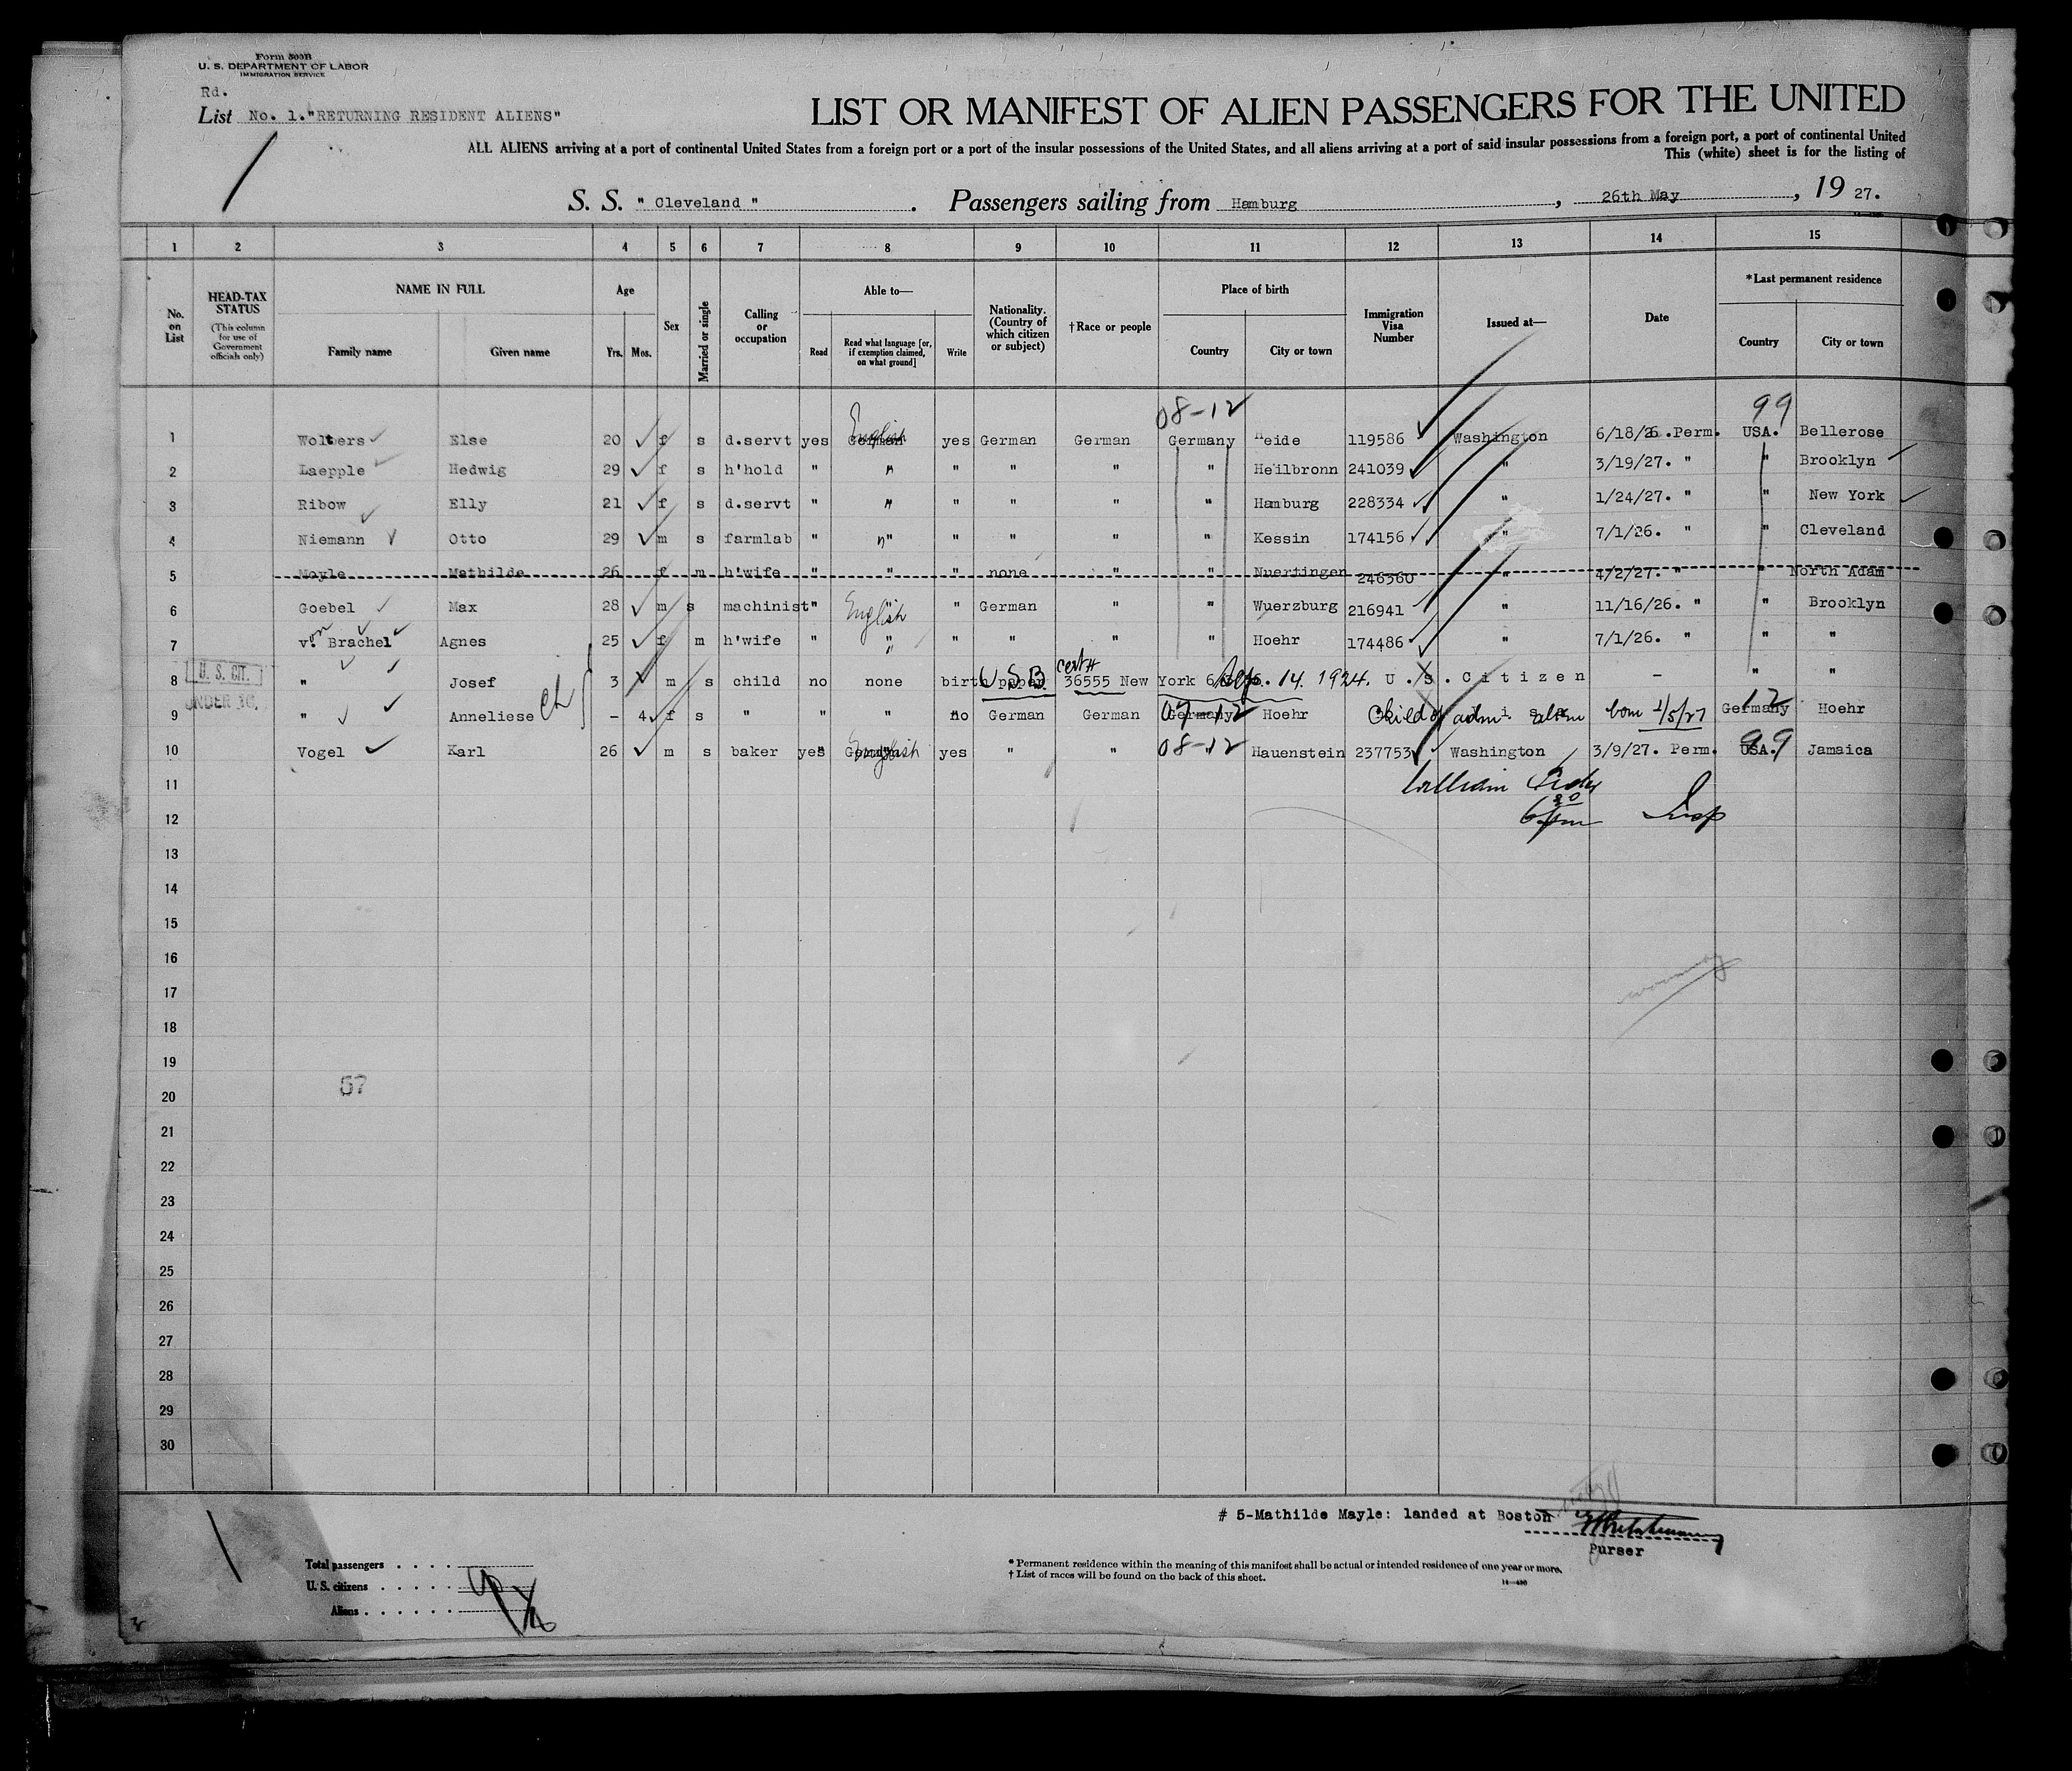 Form 500B
U. S. DEPARTMENT OF LABOR
IMMIGRATION SERVICE
Rd.
List No. 1."RETURNING RESIDENT ALIENS"
LIST OR MANIFEST OF ALIEN PASSENGERS FOR THE UNITED
ALL ALIENS arriving at a port of continental United States from a foreign port or a port of the insular possessions of the United States, and all aliens arriving at a port of said insular possessions from a foreign port, a port of continental United
This (white) sheet is for the listing of
S. S. " Cleveland " . Passengers sailing from Hamburg , 26th May , 19 27.
1 2 3 4 5 6 7 8 9 10 11 12 13 14 15
No. on List
HEAD-TAX STATUS (This column for use of Government officials only)
NAME IN FULL Family name Given name
Age Yrs. Mos.
Sex
Married or single
Calling or occupation
Able to— Read Read what language [or, if exemption claimed, on what ground] Write
Nationality. (Country of which citizen or subject)
†Race or people
Place of birth Country City or town
Immigration Visa Number
Issued at—
Date
*Last permanent residence Country City or town
08-12 99
1 Wolters Else 20 f s d.servt yes German English yes German German Germany Heide 119586 Washington 6/18/26.Perm. USA. Bellerose
2 Laepple Hedwig 29 f s h'hold " " " " " " Heilbronn 241039 " 3/19/27. " " Brooklyn
3 Ribow Elly 21 f s d.servt " " " " " " Hamburg 228334 " 1/24/27. " " New York
4 Niemann Otto 29 m s farmlab " " " " " " Kessin 174156 " 7/1/26. " Cleveland
5 Moyle Mathilde 26 f m h'wife " " " none " " Nuertingen 246560 " 4/2/27. " " North Adam
6 Goebel Max 28 m s machinist " English " German " " Wuerzburg 216941 " 11/16/26. " " Brooklyn
7 von Brachel Agnes 25 f m h'wife " " " " " " Hoehr 174486 " 7/1/26. " " "
U. S. CIT.
UNDER 16.
8 " Josef 3 m s child no none birth paper U S B cert # 36555 New York Sep. 14. 1924. U.S.Citizen - " "
9 " Anneliese ch - 4 f s " " " no German German Germany 07-12 Hoehr Child of adm. alien born 1/5/27 Germany 12 Hoehr
10 Vogel Karl 26 m s baker yes German English yes " " 08-12 " Hauenstein 237753 Washington 3/9/27. Perm. USA. 99 Jamaica
11 William
12 6 30 pm Insp
13
14
15
16
17
18
19
20 57
21
22
23
24
25
26
27
28
29
30
# 5-Mathilde Mayle: landed at Boston
Purser
Total passengers . . . .
U. S. citizens . . . . .
Aliens . . . . . .
* Permanent residence within the meaning of this manifest shall be actual or intended residence of one year or more.
† List of races will be found on the back of this sheet.